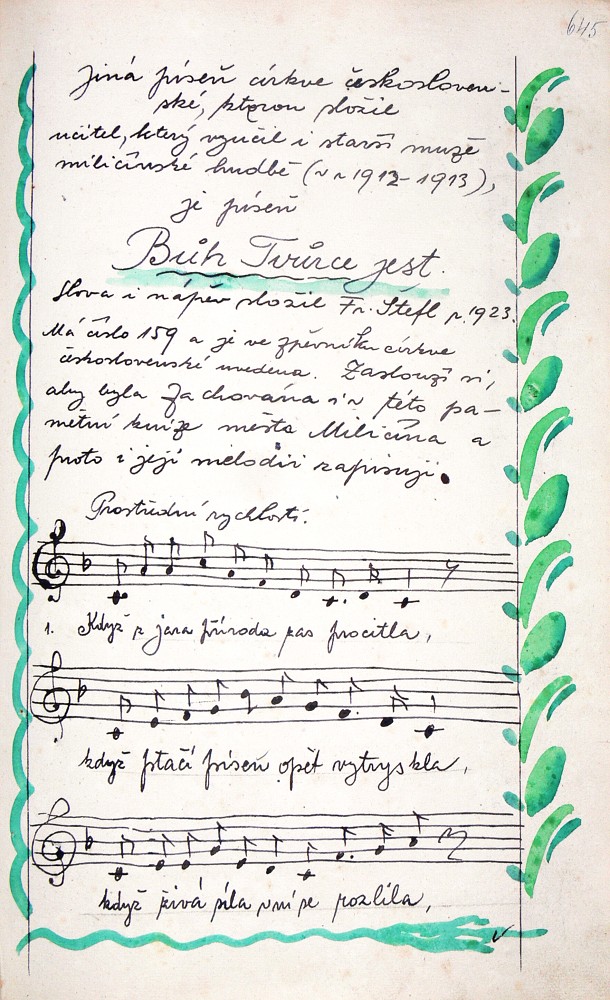 645
Jiná píseň církve českosloven-
ské, kterou složil
učitel, který vyučil i starší muže
miličínské hudbě (v r. 1912-1913),
je píseň
Bůh Tvůrce jest.
Slova i nápěv složil Fr. Štefl r. 1923.
Má číslo 159 a je ve zpěvníku církve
československé uvedena. Zaslouží si,
aby byla zachována i v této pa-
mětní knize města Miličína a
proto i její melodii zapisuji.
Prostřední rychlostí.
1. Když z jara příroda zas procitla,
když ptačí píseň opět vytryskla,
když živá síla v ní se rozlila,